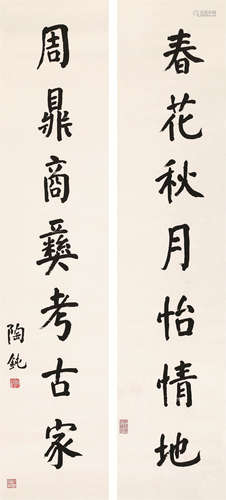 春花秋月怡情地
周鼎商彝考古家
陶鈍